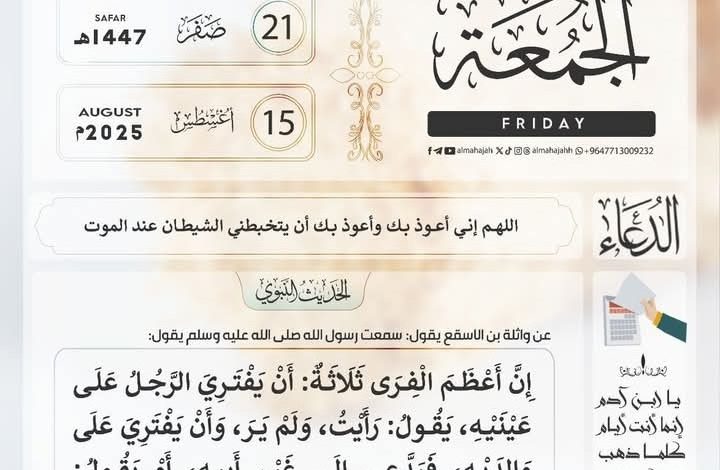 الجُمُعَة
FRIDAY
almahajah almahajahh +9647713009232
SAFAR
1447هـ
صَفَر
21
AUGUST
2025م
أغسطس
15
الدُّعَاء
اللهم إني أعوذ بك وأعوذ بك أن يتخبطني الشيطان عند الموت
الحديث النبوي
عن واثلة بن الاسقع يقول: سمعت رسول الله صلى الله عليه وسلم يقول:
إِنَّ أَعْظَمَ الْفِرَى ثَلَاثَةٌ: أَنْ يَفْتَرِيَ الرَّجُلُ عَلَى
عَيْنَيْهِ، يَقُولُ: رَأَيْتُ، وَلَمْ يَرَ، وَأَنْ يَفْتَرِيَ عَلَى
يا ابن آدم
إنما أنت أيام
كلما ذهب